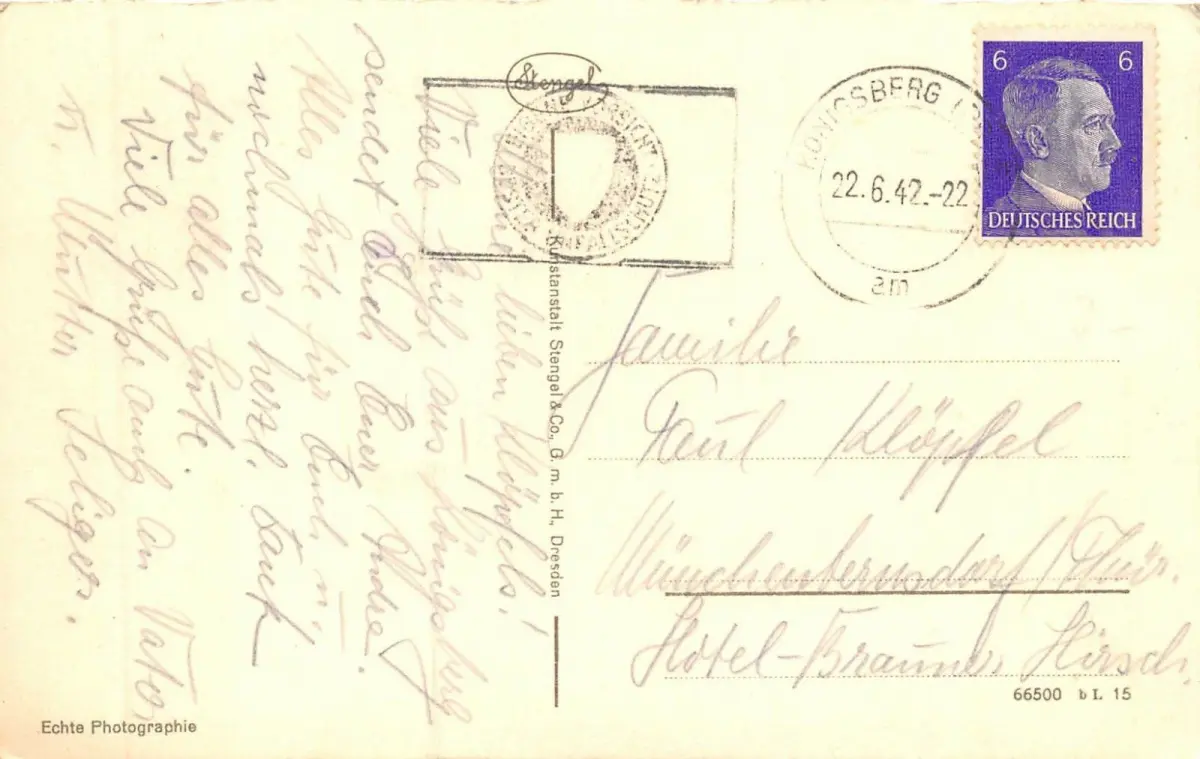 Meine lieben Klöpfels!
Viele Grüße aus Königsberg
sendet Euch Euer Andre.
Alles Gute für Euch u.
nochmals herzl. Dank
für alles Gute.
Viele Grüße auch an Vater
u. Mutter Seliger.
Stengel
Kunstanstalt Stengel & Co., G. m. b. H., Dresden
KÖNIGSBERG
22.6.42.-22
am
6 6
DEUTSCHES REICH
Familie
Paul Klöpfel
Münchenbernsdorf/Thür.
Hotel-Brauner Hirsch.
66500 b L 15
Echte Photographie